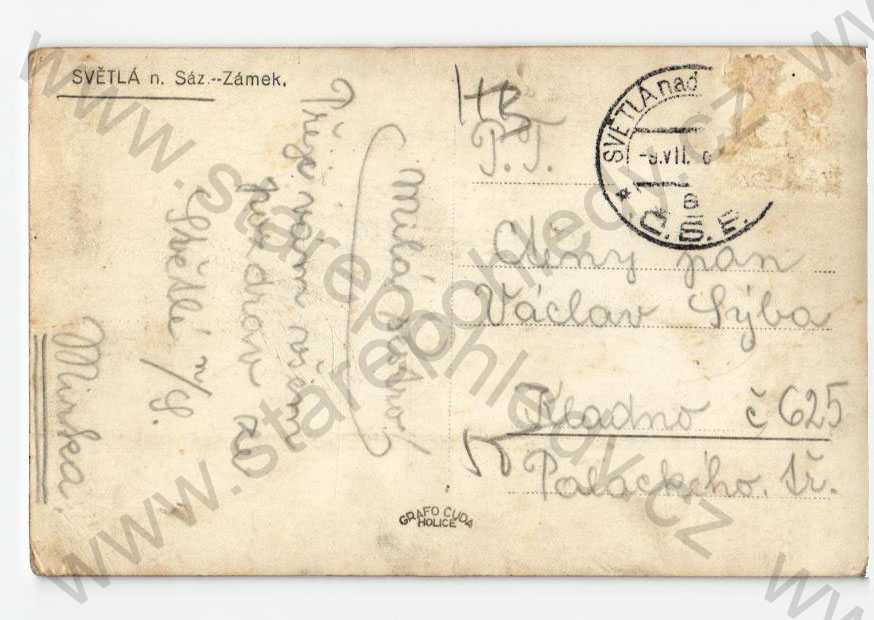 SVĚTLÁ n. Sáz.--Zámek.
Milá sestro!
vám všem
pozdrav ze
Světlé n/S.
Mirka.
P.T.
Ctěný pan
Václav Sýba
Kladno č 625
Palackého tř.
SVĚTLÁ nad
-9.VII.
a
Č.S.P.
GRAFO ČUDA
HOLICE
www.starepohledy.cz
www.starepohledy.cz